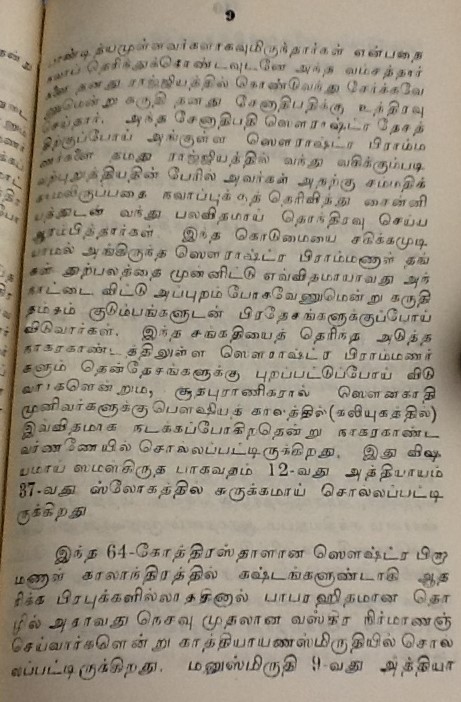 9
பாண்டித்யமுள்ளவர்களாகவுமிருந்தார்கள் என்பதை
நவாப் தெரிந்துகொண்டவுடனே அந்த வம்சத்தார்
களை தனது ராஜ்ஜியத்தில் கொண்டுவந்து சேர்க்கவே
ணுமென்று கருதி தனது சேனாபதிக்கு உத்திரவு
செய்தார். அந்த சேனாதிபதி ஸௌராஷ்ட்ர தேசத்
திற்குப்போய் அங்குள்ள ஸௌராஷ்ட்ர பிராம்ம
ணர்களை தமது ராஜ்ஜியத்தில் வந்து வசிக்கும்படி
வற்புறுத்தியதின் பேரில் அவர்கள் அதற்கு சம்மதிக்
காமலிருப்பதை நவாப்புக்குத் தெரிவித்து சைன்னி
யத்துடன் வந்து பலவிதமாய் தொந்திரவு செய்ய
ஆரம்பித்தார்கள். இந்த கொடுமையை சகிக்கமுடி
யாமல் அங்கிருந்த ஸௌராஷ்ட்ர பிராம்மணாள் தங்
கள் துற்பலத்தை முன்னிட்டு எவ்விதமாயாவது அந்
நாட்டை விட்டு அப்புறம் போகவேணுமென்று கருதி
தம்தம் குடும்பங்களுடன் பிரதேசங்களுக்குப்போய்
விடுவார்கள். இந்த சங்கதியைத் தெரிந்த அடுத்த
நாகரகாண்டத்திலுள்ள ஸௌராஷ்ட்ர பிராம்மணர்
களும் தென்தேசங்களுக்கு புறப்பட்டுப்போய் விடு
வார்களென்றும், சூதபுராணிகரால் ஸௌனகாதி
முனிவர்களுக்கு பௌஷியத் காலத்தில்(கலியுகத்தில்)
இவ்விதமாக நடக்கப்போகிறதென்று நாகரகாண்ட
வர்ணணேயில் சொல்லப்பட்டிருக்கிறது. இது விஷ
யமாய் ஸம்ஸ்கிருத பாகவதம் 12-வது அத்தியாயம்
37-வது ஸ்லோகத்தில் சுருக்கமாய் சொல்லப்பட்டி
ருக்கிறது
இந்த 64-கோத்திரஸ்தாளான ஸௌஷ்ட்ர பிரா
மணாள் காலாந்திரத்தில் கஷ்டங்களுண்டாகி ஆத
ரிக்க பிரபுக்களில்லாததினால் பாபரஹிதமான தொ
ழில் அதாவது நெசவு முதலான வஸ்திர நிர்மாணஞ்
செய்வார்களென்று காத்தியாயணஸ்மிருதியில் சொல
லப்பட்டிருக்கிறது. மனுஸ்மிருதி 9-வது அத்தியா